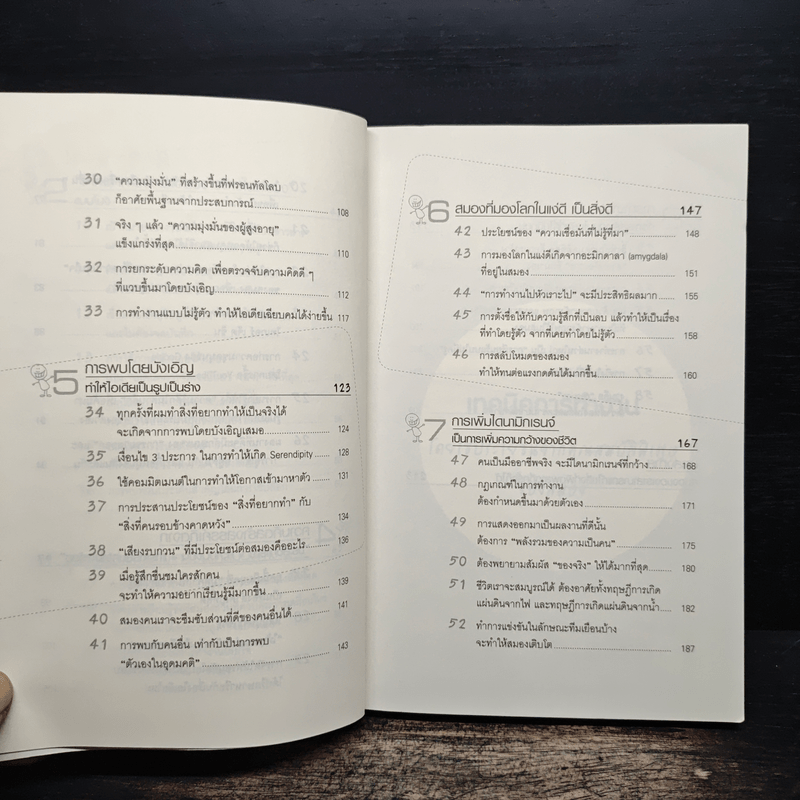 30 "ความมุ่งมั่น" ที่สร้างขึ้นที่ฟรอนทัลโลบ
ก็อาศัยพื้นฐานจากประสบการณ์ 108
31 จริง ๆ แล้ว "ความมุ่งมั่นของผู้สูงอายุ"
แข็งแกร่งที่สุด 110
32 การยกระดับความคิด เพื่อตรวจจับความคิดดี ๆ
ที่แวบขึ้นมาโดยบังเอิญ 112
33 การทำงานแบบไม่รู้ตัว ทำให้ไอเดียเฉียบคมได้ง่ายขึ้น 117
5 การพบโดยบังเอิญ
ทำให้ไอเดียเป็นรูปเป็นร่าง 123
34 ทุกครั้งที่ผมทำสิ่งที่อยากทำให้เป็นจริงได้
จะเกิดจากการพบโดยบังเอิญเสมอ 124
35 เงื่อนไข 3 ประการ ในการทำให้เกิด Serendipity 128
36 ใช้คอมมิตเมนต์ในการทำให้โอกาสเข้ามาหาตัว 131
37 การประสานประโยชน์ของ "สิ่งที่อยากทำ" กับ
"สิ่งที่คนรอบข้างคาดหวัง" 134
38 "เสียงรบกวน" ที่มีประโยชน์ต่อสมองคืออะไร 136
39 เมื่อรู้สึกชื่นชมใครสักคน
จะทำให้ความอยากเรียนรู้มีมากขึ้น 139
40 สมองคนเราจะซึมซับส่วนที่ดีของคนอื่นได้ 141
41 การพบกับคนอื่น เท่ากับเป็นการพบ
"ตัวเองในอุดมคติ" 143
6 สมองที่มองโลกในแง่ดี เป็นสิ่งดี 147
42 ประโยชน์ของ "ความเชื่อมั่นที่ไม่รู้ที่มา" 148
43 การมองโลกในแง่ดีเกิดจากอะมิกดาลา (amygdala)
ที่อยู่ในสมอง 151
44 "การทำงานไปหัวเราะไป" จะมีประสิทธิผลมาก 155
45 การตั้งชื่อให้กับความรู้สึกที่เป็นลบ แล้วทำให้เป็นเรื่อง
ที่ทำโดยรู้ตัว จากที่เคยทำโดยไม่รู้ตัว 158
46 การสลับโหมดของสมอง
ทำให้ทนต่อแรงกดดันได้มากขึ้น 160
7 การเพิ่มไดนามิกเรนจ์
เป็นการเพิ่มความกว้างของชีวิต 167
47 คนเป็นมืออาชีพจริง จะมีไดนามิกเรนจ์ที่กว้าง 168
48 กฎเกณฑ์ในการทำงาน
ต้องกำหนดขึ้นมาด้วยตัวเอง 171
49 การแสดงออกมาเป็นผลงานที่ดีนั้น
ต้องการ "พลังรวมของความเป็นคน" 175
50 ต้องพยายามสัมผัส "ของจริง" ให้ได้มากที่สุด 180
51 ชีวิตเราจะสมบูรณ์ได้ ต้องอาศัยทั้งทฤษฎีการเกิด
แผ่นดินจากไฟ และทฤษฎีการเกิดแผ่นดินจากน้ำ 182
52 ทำการแข่งขันในลักษณะทีมเยือนบ้าง
จะทำให้สมองเติบโต 187